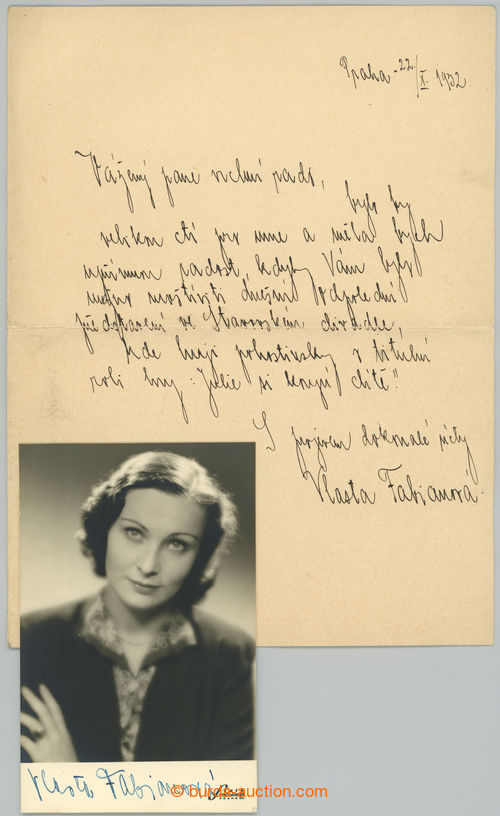 Praha - 22./X. 1932
Vážený pane vrchní rado,
bylo by
velikou ctí pro mne a měla bych
upřímnou radost, kdyby Vám bylo
možno navštíviti dnešní odpolední
představení ve Stavovském divadle,
kde hraji pohostinsky v titulní
roli hry: „Julie si koupí dítě."
S projevem dokonalé úcty
Vlasta Fabianová.
Vlasta Fabianová
© burda-auction.com